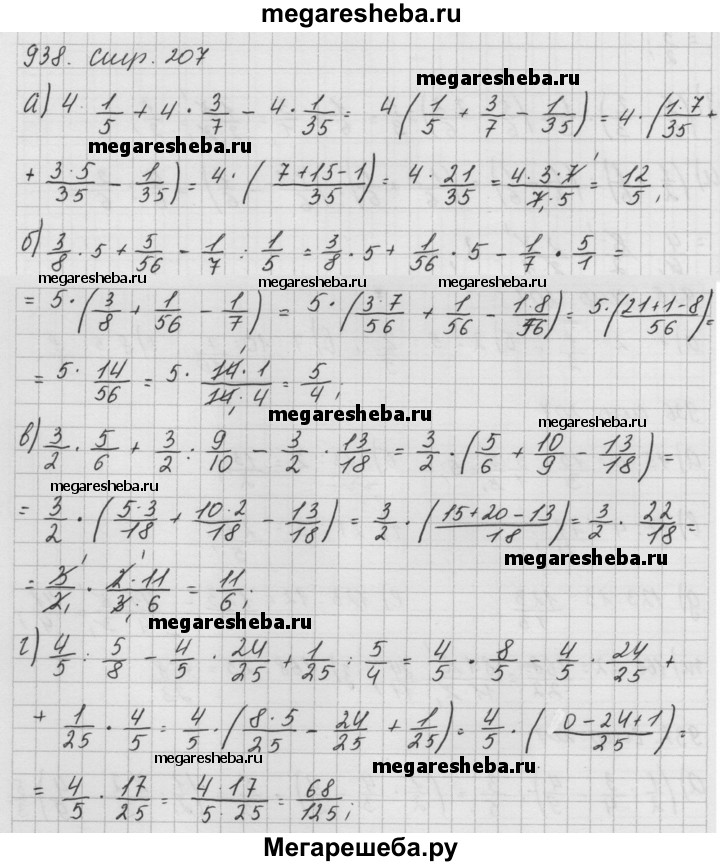 megaresheba.ru
938. стр. 207
megaresheba.ru
а) 4 · 1/5 + 4 · 3/7 − 4 · 1/35 = 4 (1/5 + 3/7 − 1/35) = 4 · (1·7/35 +
megaresheba.ru
+ 3·5/35 − 1/35) = 4 · (7+15−1/35) = 4 · 21/35 = 4·3·7/7·5 = 12/5;
megaresheba.ru
б) 3/8 · 5 + 5/56 − 1/7 : 1/5 = 3/8 · 5 + 1/56 · 5 − 1/7 · 5/1 =
megaresheba.ru megaresheba.ru megaresheba.ru
= 5 · (3/8 + 1/56 − 1/7) = 5 · (3·7/56 + 1/56 − 1·8/56) = 5 · (21+1−8/56) =
= 5 · 14/56 = 5 · 14·1/14·4 = 5/4;
megaresheba.ru
megaresheba.ru
в) 3/2 · 5/6 + 3/2 : 9/10 − 3/2 · 13/18 = 3/2 · (5/6 + 10/9 − 13/18) =
megaresheba.ru
= 3/2 · (5·3/18 + 10·2/18 − 13/18) = 3/2 · (15+20−13/18) = 3/2 · 22/18 =
megaresheba.ru
= 3/2 · 2·11/3·6 = 11/6;
megaresheba.ru
г) 4/5 : 5/8 − 4/5 · 24/25 + 1/25 : 5/4 = 4/5 · 8/5 − 4/5 · 24/25 +
+ 1/25 · 4/5 = 4/5 · (8·5/25 − 24/25 + 1/25) = 4/5 · (0−24+1/25) =
megaresheba.ru megaresheba.ru
= 4/5 · 17/25 = 4·17/5·25 = 68/125;
Мегарешеба.ру